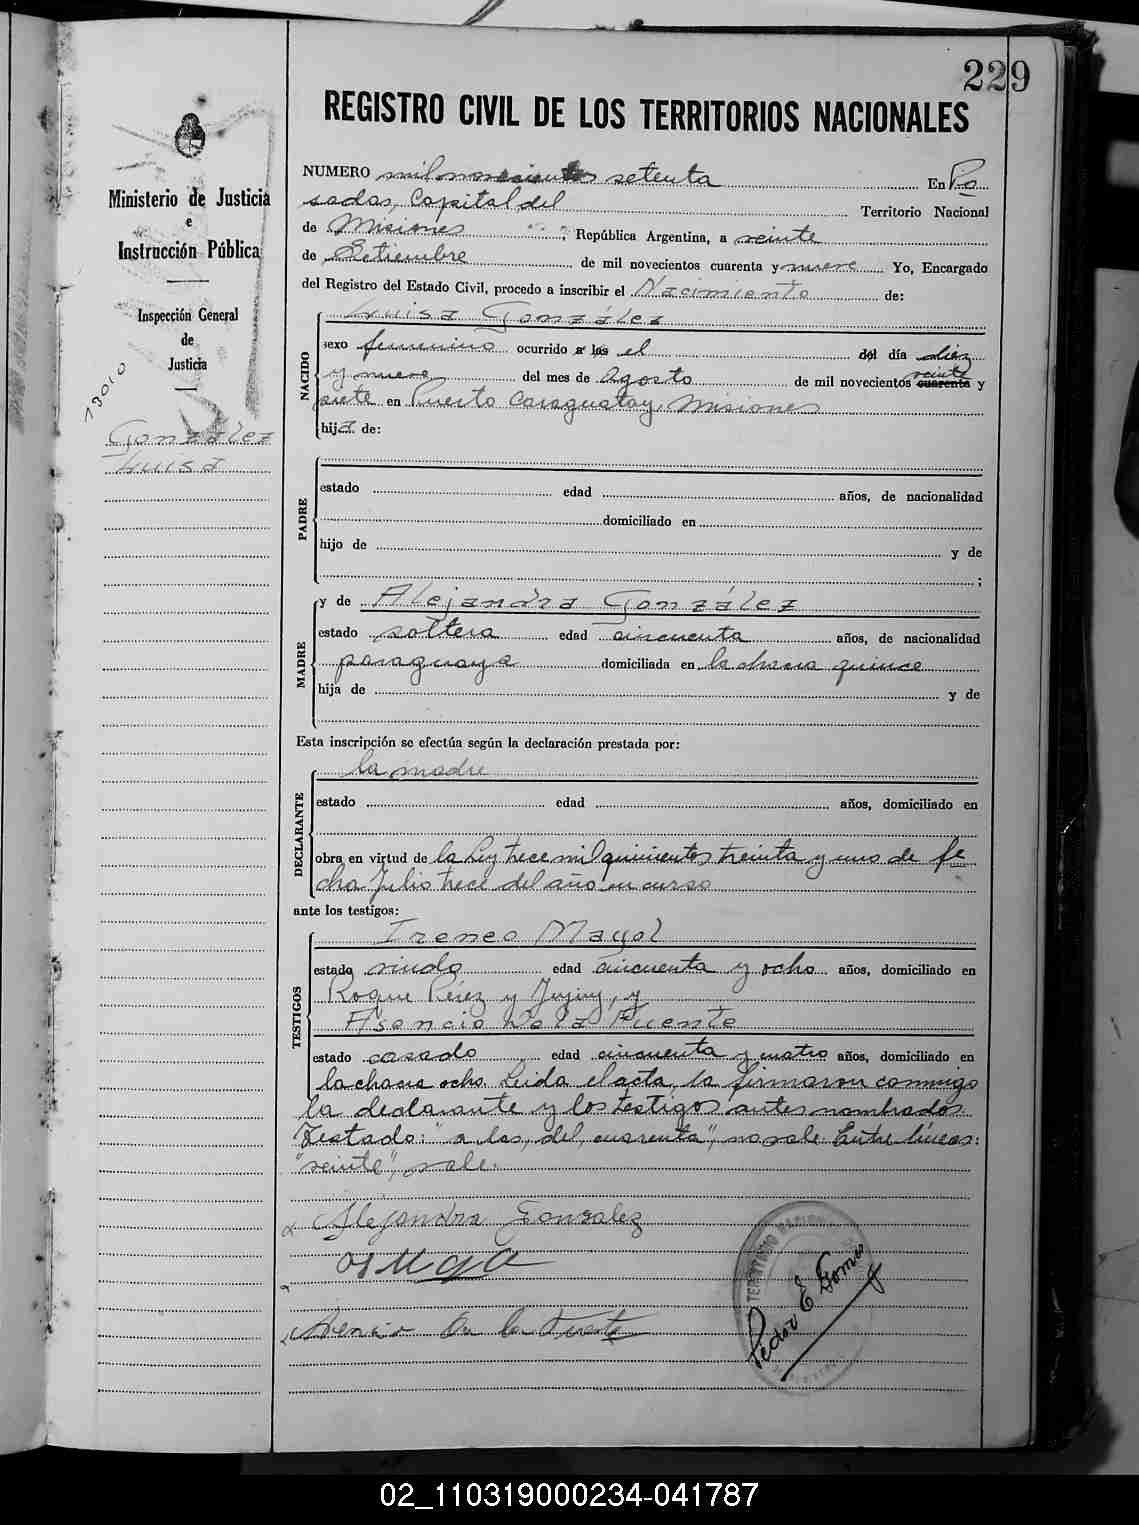 229
REGISTRO CIVIL DE LOS TERRITORIOS NACIONALES
Ministerio de Justicia
e
Instrucción Pública
Inspección General
de
Justicia
González
Luisa
NUMERO mil novecientos setenta En Po
sadas, Capital del Territorio Nacional
de Misiones, República Argentina, a veinte
de Setiembre de mil novecientos cuarenta y nueve Yo, Encargado
del Registro del Estado Civil, procedo a inscribir el Nacimiento de:
NACIDO
Luisa González
sexo femenino ocurrido a las el del día diez
veinte
y nueve del mes de Agosto de mil novecientos cuarenta y
siete en Puerto Caraguatay, Misiones
hija de:
PADRE
estado edad años, de nacionalidad
domiciliado en
hijo de y de
;
MADRE
y de Alejandra González
estado soltera edad cincuenta años, de nacionalidad
paraguaya domiciliada en la chacra quince
hija de y de
Esta inscripción se efectúa según la declaración prestada por:
DECLARANTE
la madre
estado edad años, domiciliado en
obra en virtud de la Ley trece mil quinientos treinta y uno de fe
cha Julio trece del año en curso
ante los testigos:
TESTIGOS
Ireneo Mayol
estado viudo edad cincuenta y ocho años, domiciliado en
Roque Pérez y Jujuy, y
Asencio De la Fuente
estado casado edad cincuenta y cuatro años, domiciliado en
la chacra ocho. Leida el acta, la firmaron conmigo
la declarante y los testigos antes nombrados
Testado: "a las, del, cuarenta", no vale. Entre líneas:
"veinte", vale.
Alejandra Gonzalez
Asencio De la Fuente
TERRITORIO NACIONAL DE
Pedro E Gomez
02_110319000234-041787